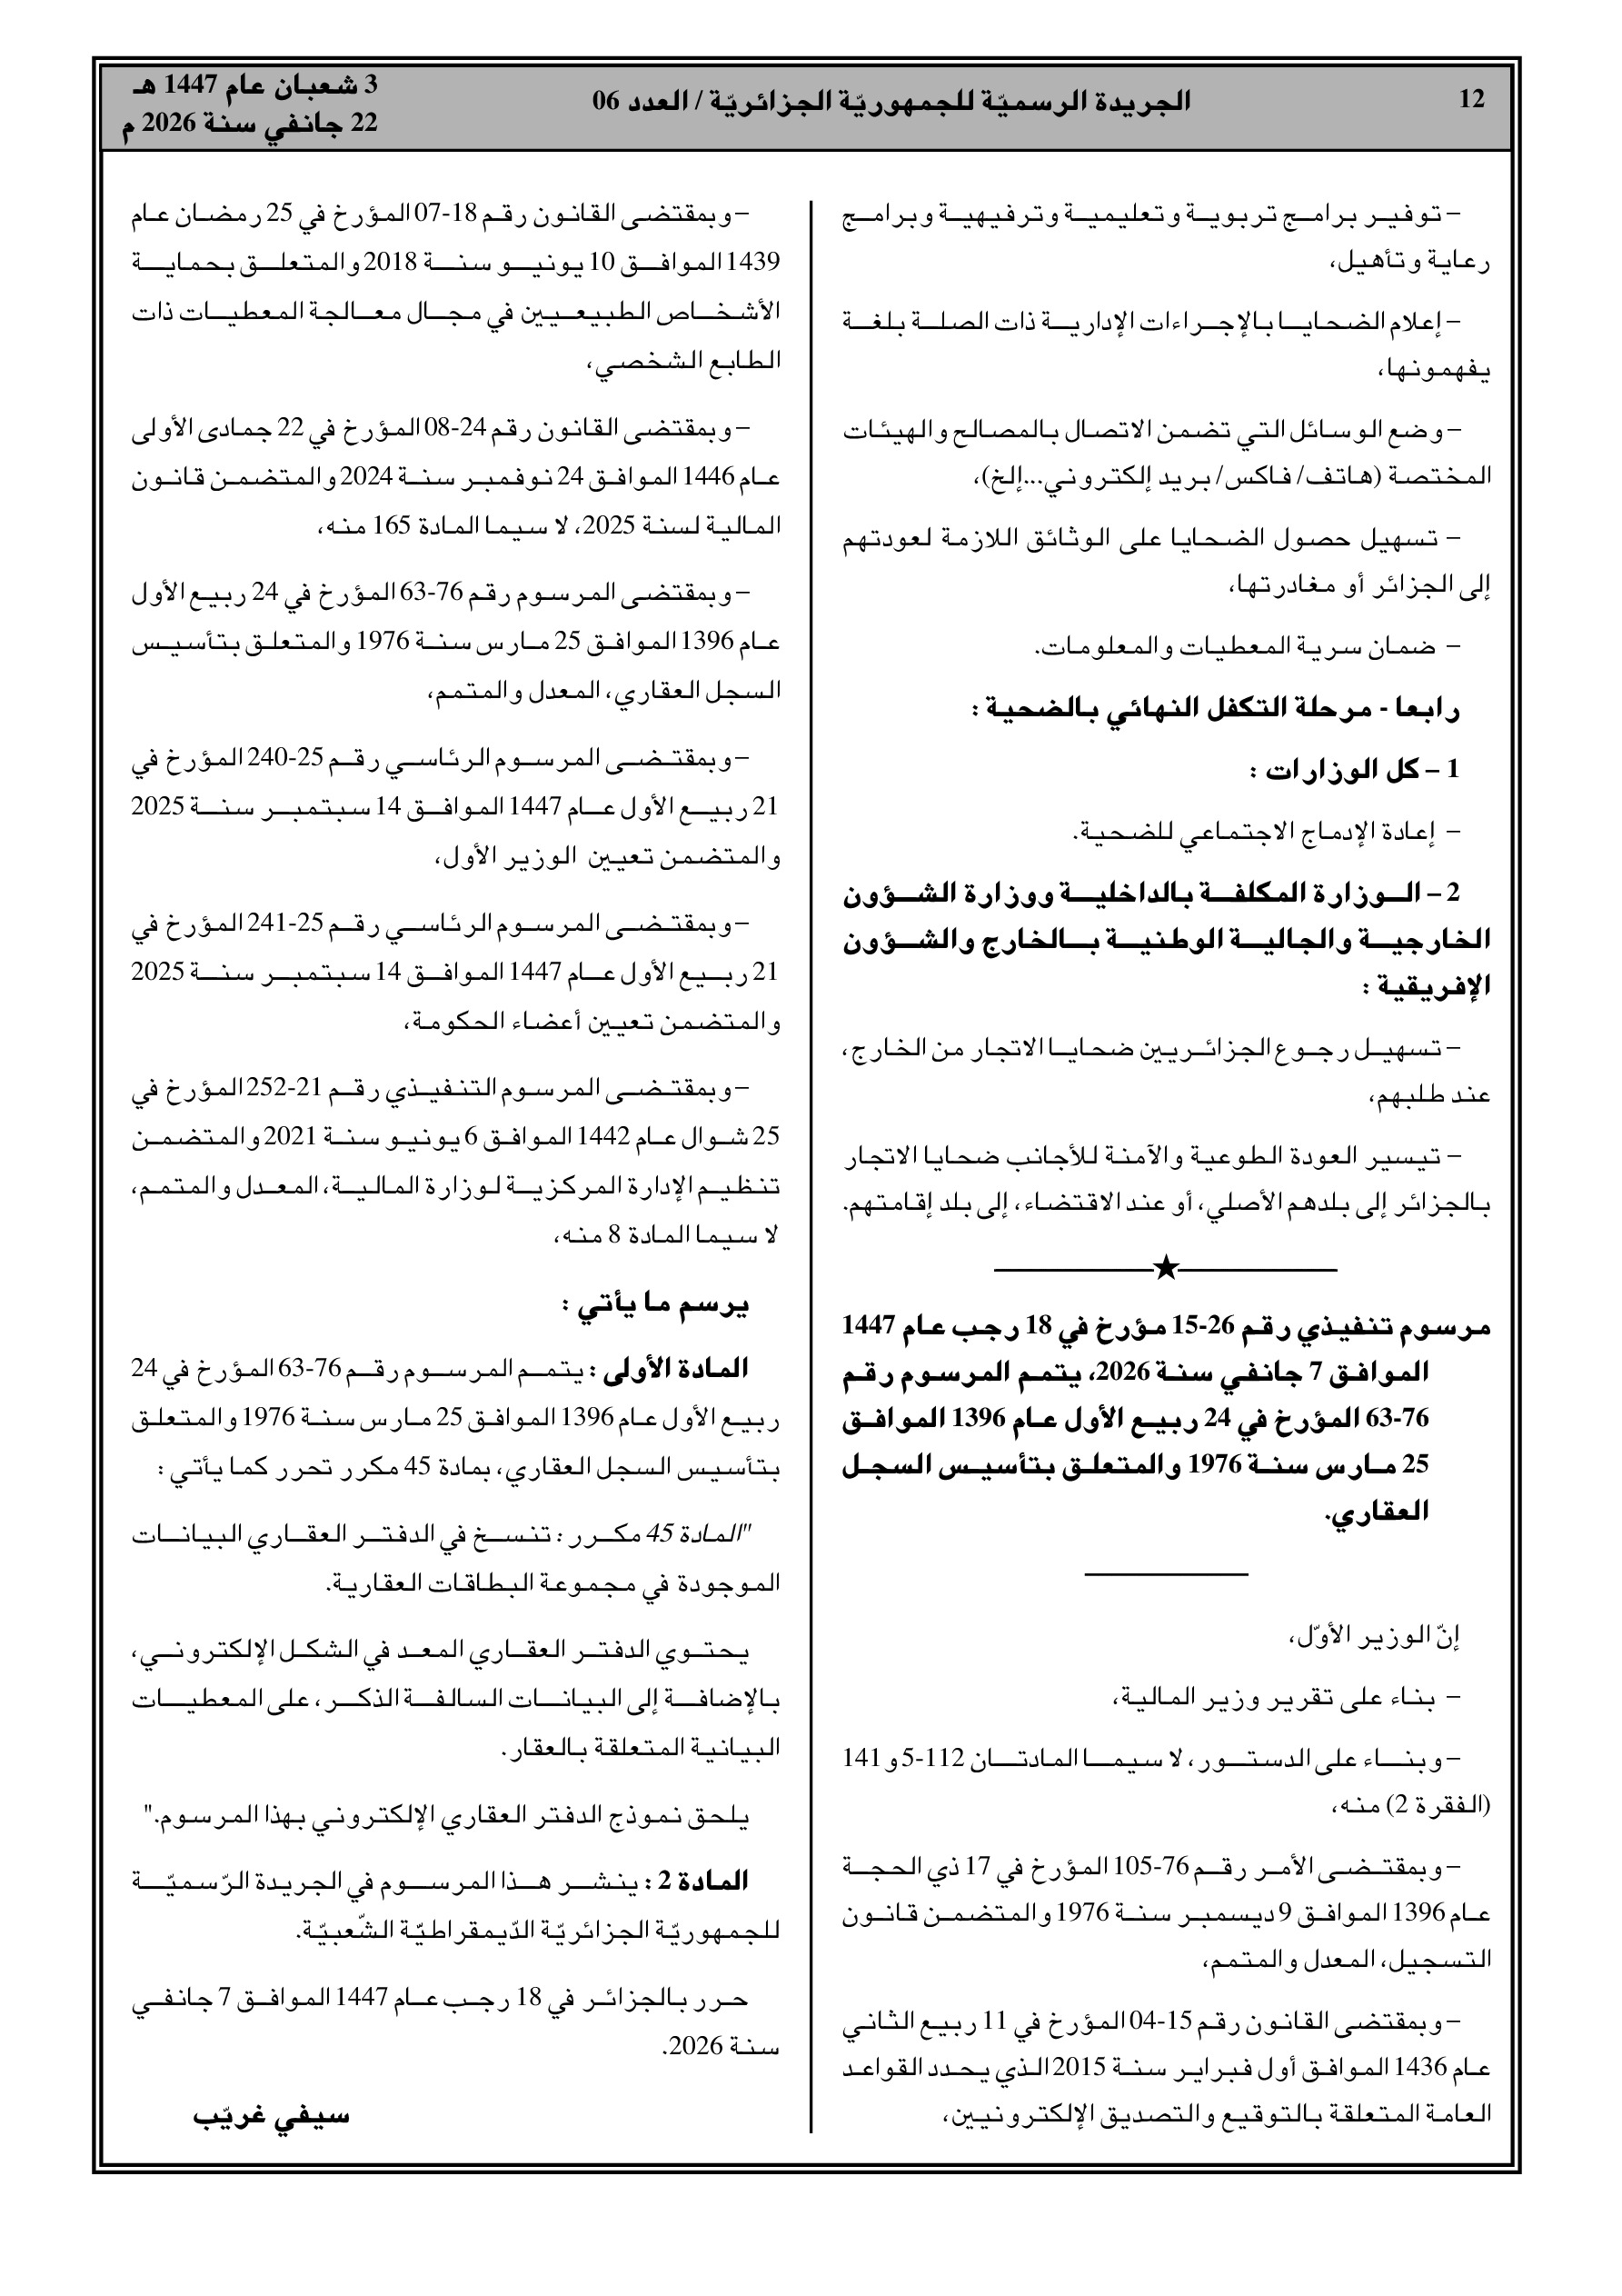 12
الجريدة الرسميّة للجمهوريّة الجزائريّة / العدد 06
3 شعبان عام 1447 هـ
22 جانفي سنة 2026 م
– توفير برامج تربوية وتعليمية وترفيهية وبرامج
رعاية وتأهيل،
– إعلام الضحايا بالإجراءات الإدارية ذات الصلة بلغة
يفهمونها،
– وضع الوسائل التي تضمن الاتصال بالمصالح والهيئات
المختصة (هاتف/ فاكس/ بريد إلكتروني...إلخ)،
– تسهيل حصول الضحايا على الوثائق اللازمة لعودتهم
إلى الجزائر أو مغادرتها،
– ضمان سرية المعطيات والمعلومات.
رابعا - مرحلة التكفل النهائي بالضحية :
1 – كل الوزارات :
– إعادة الإدماج الاجتماعي للضحية.
2 – الوزارة المكلفة بالداخلية ووزارة الشؤون
الخارجية والجالية الوطنية بالخارج والشؤون
الإفريقية :
– تسهيل رجوع الجزائريين ضحايا الاتجار من الخارج،
عند طلبهم،
– تيسير العودة الطوعية والآمنة للأجانب ضحايا الاتجار
بالجزائر إلى بلدهم الأصلي، أو عند الاقتضاء، إلى بلد إقامتهم.
مرسوم تنفيذي رقم 26-15 مؤرخ في 18 رجب عام 1447
الموافق 7 جانفي سنة 2026، يتمم المرسوم رقم
76-63 المؤرخ في 24 ربيع الأول عام 1396 الموافق
25 مارس سنة 1976 والمتعلق بتأسيس السجل
العقاري.
إنّ الوزير الأوّل،
– بناء على تقرير وزير المالية،
– وبناء على الدستور، لا سيما المادتان 112-5 و 141
(الفقرة 2) منه،
– وبمقتضى الأمر رقم 76-105 المؤرخ في 17 ذي الحجة
عام 1396 الموافق 9 ديسمبر سنة 1976 والمتضمن قانون
التسجيل، المعدل والمتمم،
– وبمقتضى القانون رقم 15-04 المؤرخ في 11 ربيع الثاني
عام 1436 الموافق أول فبراير سنة 2015 الذي يحدد القواعد
العامة المتعلقة بالتوقيع والتصديق الإلكترونيين،
– وبمقتضى القانون رقم 18-07 المؤرخ في 25 رمضان عام
1439 الموافق 10 يونيو سنة 2018 والمتعلق بحماية
الأشخاص الطبيعيين في مجال معالجة المعطيات ذات
الطابع الشخصي،
– وبمقتضى القانون رقم 24-08 المؤرخ في 22 جمادى الأولى
عام 1446 الموافق 24 نوفمبر سنة 2024 والمتضمن قانون
المالية لسنة 2025، لا سيما المادة 165 منه،
– وبمقتضى المرسوم رقم 76-63 المؤرخ في 24 ربيع الأول
عام 1396 الموافق 25 مارس سنة 1976 والمتعلق بتأسيس
السجل العقاري، المعدل والمتمم،
– وبمقتضى المرسوم الرئاسي رقم 25-240 المؤرخ في
21 ربيع الأول عام 1447 الموافق 14 سبتمبر سنة 2025
والمتضمن تعيين الوزير الأول،
– وبمقتضى المرسوم الرئاسي رقم 25-241 المؤرخ في
21 ربيع الأول عام 1447 الموافق 14 سبتمبر سنة 2025
والمتضمن تعيين أعضاء الحكومة،
– وبمقتضى المرسوم التنفيذي رقم 21-252 المؤرخ في
25 شوال عام 1442 الموافق 6 يونيو سنة 2021 والمتضمن
تنظيم الإدارة المركزية لوزارة المالية، المعدل والمتمم،
لا سيما المادة 8 منه،
يرسم ما يأتي :
المادة الأولى : يتمم المرسوم رقم 76-63 المؤرخ في 24
ربيع الأول عام 1396 الموافق 25 مارس سنة 1976 والمتعلق
بتأسيس السجل العقاري، بمادة 45 مكرر تحرر كما يأتي :
"المادة 45 مكرر : تنسخ في الدفتر العقاري البيانات
الموجودة في مجموعة البطاقات العقارية.
يحتوي الدفتر العقاري المعد في الشكل الإلكتروني،
بالإضافة إلى البيانات السالفة الذكر، على المعطيات
البيانية المتعلقة بالعقار.
يلحق نموذج الدفتر العقاري الإلكتروني بهذا المرسوم."
المادة 2 : ينشر هذا المرسوم في الجريدة الرّسميّة
للجمهوريّة الجزائريّة الدّيمقراطيّة الشّعبيّة.
حرر بالجزائر في 18 رجب عام 1447 الموافق 7 جانفي
سنة 2026.
سيفي غريّب